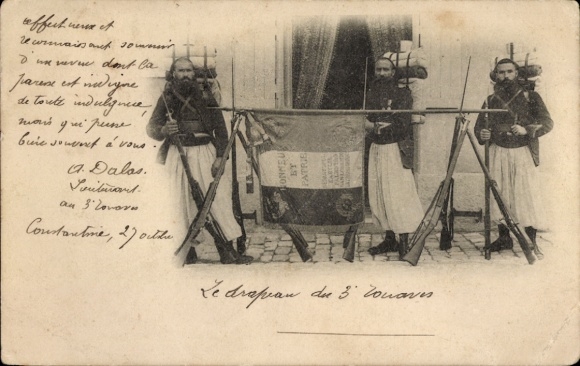 affectueux et
reconnaissant souvenir
d'un neveu dont la
paresse est indigne
de toute indulgence,
mais qui pense
bien souvent à vous.
A. Dalas.
Lieutenant
au 3e Zouaves
Constantine, 27 octobre
HONNEUR
ET
PATRIE
Le drapeau du 3e Zouaves